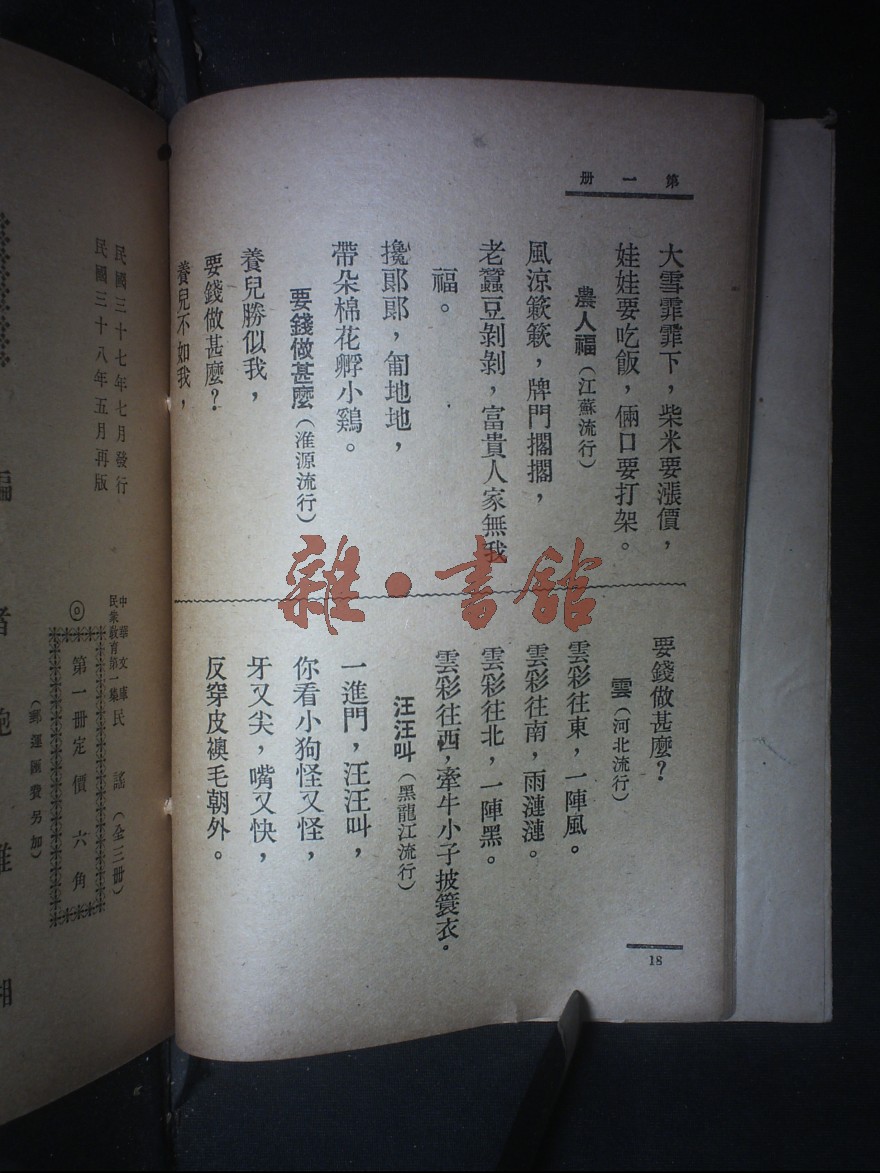 第一册
大雪霏霏下，柴米要漲價，
娃娃要吃飯，倆口要打架。
農人福（江蘇流行）
風涼簌簌，牌門擱擱，
老蠶豆剝剝，富貴人家無我
福。
攙郞郞，匍地地，
帶朵棉花孵小鷄。
要錢做甚麼（淮源流行）
養兒勝似我，
要錢做甚麼？
養兒不如我，
要錢做甚麼？
雲（河北流行）
雲彩往東，一陣風。
雲彩往南，雨漣漣。
雲彩往北，一陣黑。
雲彩往西，牽牛小子披簑衣。
汪汪叫（黑龍江流行）
一進門，汪汪叫，
你看小狗怪又怪，
牙又尖，嘴又快，
反穿皮襖毛朝外。
18
雜·書館
民國三十七年七月發行
民國三十八年五月再版
中華文庫
民衆教育第一集
民謠（全三册）
◎第一册定價六角
（郵運匯費另加）
編者